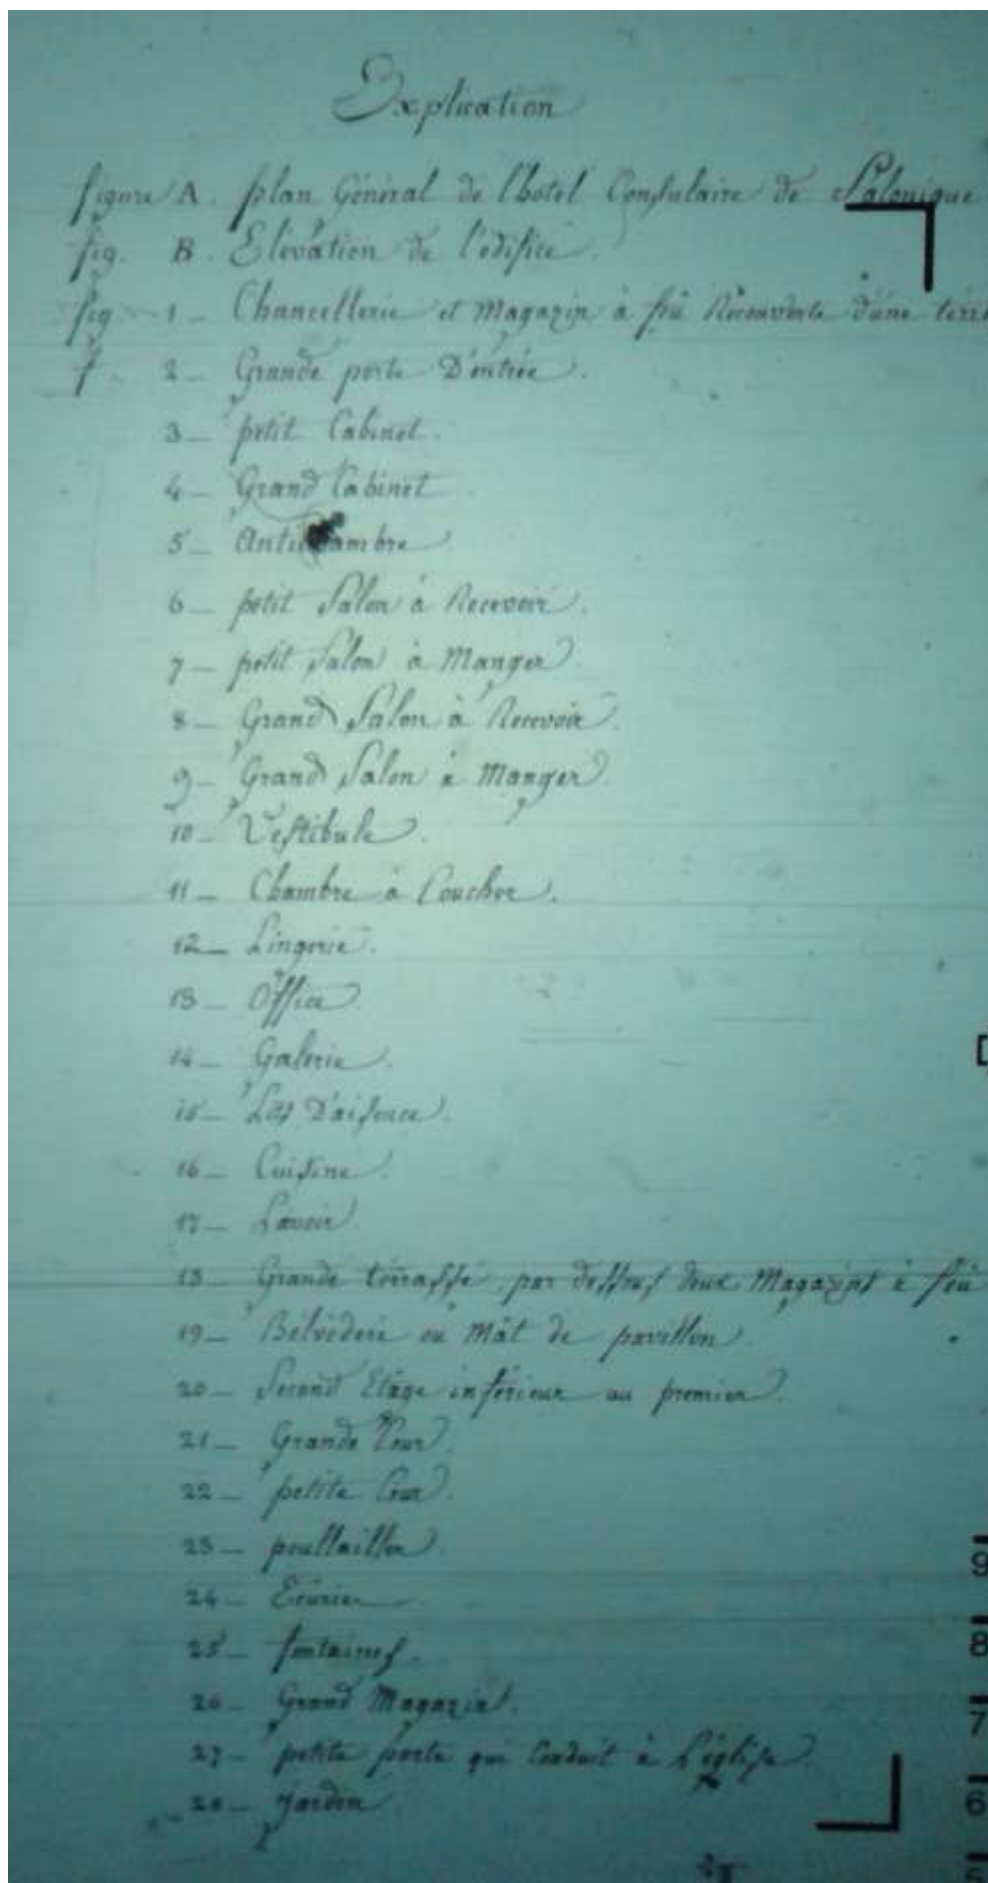 Explication
figure A. plan Général de l'hotel Consulaire de Salonique
fig. B. Elévation de l'édifice.
fig 1 _ Chancellerie et Magazin à feu Recouverte d'une
f. 2 _ Grande porte D'entrée.
3 _ petit Cabinet.
4 _ Grand Cabinet
5 _ Antichambre.
6 _ petit Salon à Recevoir.
7 _ petit Salon à Manger
8 _ Grand Salon à Recevoir.
9 _ Grand Salon à Manger
10 _ Vestibule.
11 _ Chambre à Coucher.
12 _ Lingerie.
13 _ Office.
14 _ Galerie.
15 _ D'aisence.
16 _ Cuisine.
17 _ Lavoir.
18 Grande térrasse, par dessous deux Magazins à feu
19 _ Bélvédere ou Mât de pavillon.
20 _ Second Etage inférieur au premier.
21 _ Grande Cour.
22 _ petite Cour.
23 _ poullailler.
24 _ Ecurie
25 _ fontaines.
26 _ Grand Magazin.
27 _ petite porte qui Conduit à L'église.
28 _ Jardin
9
8
7
6
5